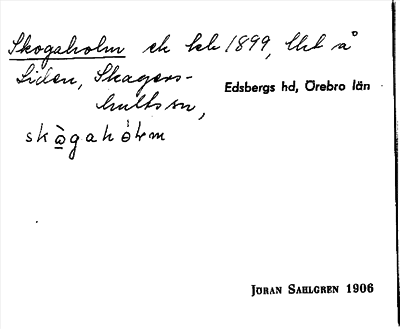 Skogaholm ek kbl 1899, lht å
Liden, Skagers-
hults sn,
Edsbergs hd, Örebro län
skògahòlm
JÖRAN SAHLGREN 1906